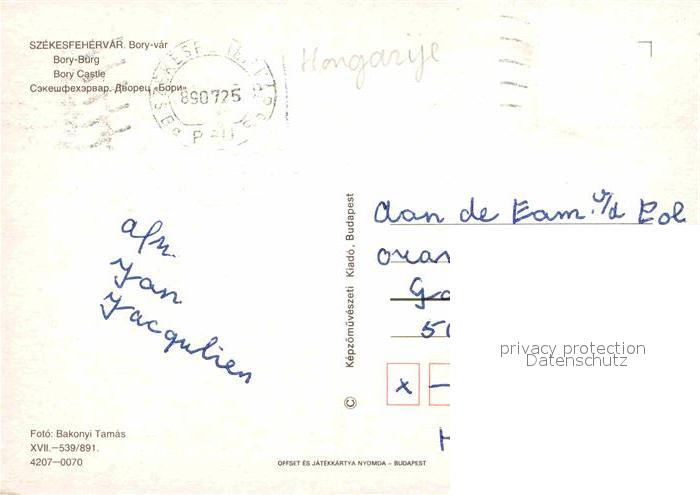 SZÉKESFEHÉRVÁR. Bory-vár
Bory-Burg
Bory Castle
Сэкешфехэрвар. Дворец «Бори»
890725
Hongarije
afz.
Jan
Jacqulien
© Képzőművészeti Kiadó, Budapest
Aan de Fam. v/d Eol
oran
Ga
50
x —
H
privacy protection
Datenschutz
Fotó: Bakonyi Tamás
XVII.—539/891.
4207—0070
OFFSET ÉS JÁTÉKKÁRTYA NYOMDA – BUDAPEST